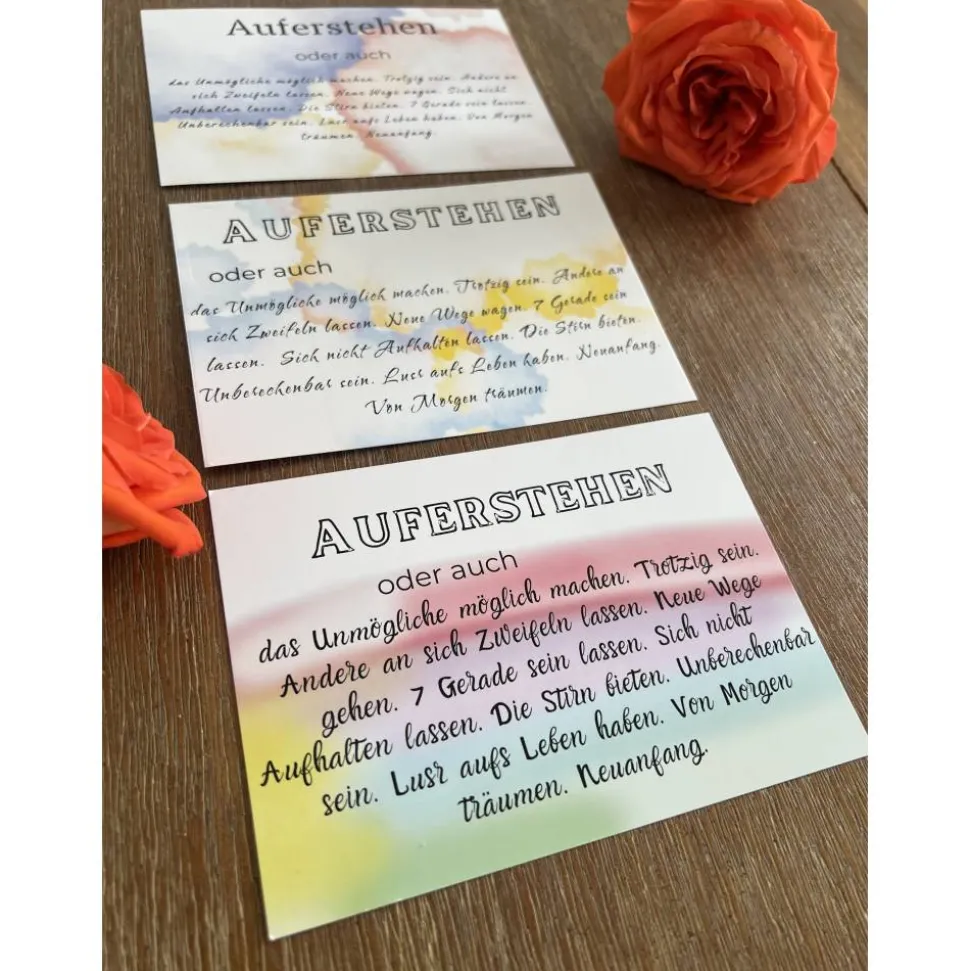 Auferstehen
oder auch
das Unmögliche möglich machen. Trotzig sein. Andere an
sich Zweifeln lassen. Neue Wege wagen. Sich nicht
Aufhalten lassen. Die Stirn bieten. 7 Gerade sein lassen.
Unberechenbar sein. Lust aufs Leben haben. Von Morgen
träumen. Neuanfang.
AUFERSTEHEN
oder auch
das Unmögliche möglich machen. Trotzig sein. Andere an
sich Zweifeln lassen. Neue Wege wagen. 7 Gerade sein
lassen. Sich nicht Aufhalten lassen. Die Stirn bieten.
Unberechenbar sein. Lust aufs Leben haben. Neuanfang.
Von Morgen träumen.
AUFERSTEHEN
oder auch
das Unmögliche möglich machen. Trotzig sein.
Andere an sich Zweifeln lassen. Neue Wege
gehen. 7 Gerade sein lassen. Sich nicht
Aufhalten lassen. Die Stirn bieten. Unberechenbar
sein. Lust aufs Leben haben. Von Morgen
träumen. Neuanfang.